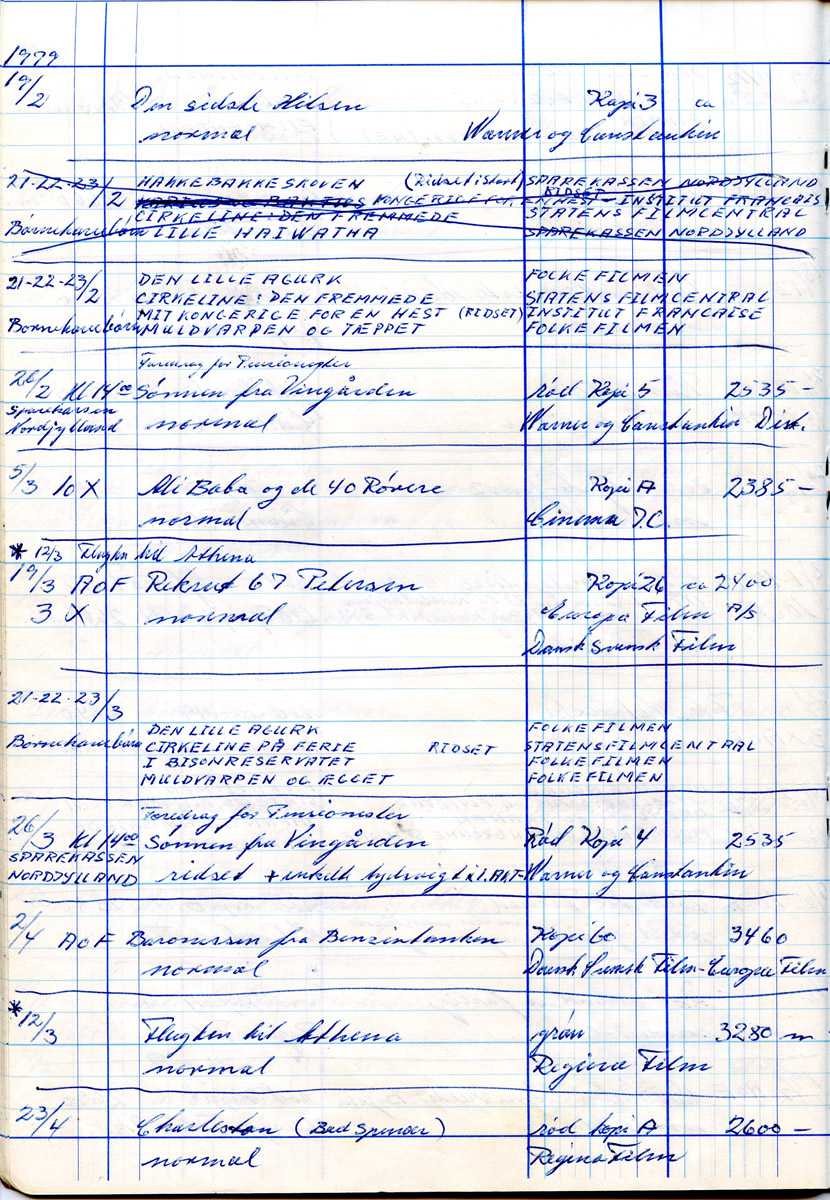 1979
19/2 Den sidste Hilsen Kopi 3 ca
normal Warner og Constantin
21-22-23/2 HAKKEBAKKESKOVEN (Ridset i start) SPAREKASSEN NORDJYLLAND
KONGERIGE FOR EN HEST - INSTITUT FRANCAIS RIDSET
CIRKELINE: DEN FREMMEDE STATENS FILMCENTRAL
Børnehavebørn LILLE HAIWATHA SPAREKASSEN NORDJYLLAND
21-22-23/2 DEN LILLE AGURK FOLKE FILMEN
CIRKELINE: DEN FREMMEDE STATENS FILMCENTRAL
MIT KONGERIGE FOR EN HEST (RIDSET) INSTITUT FRANCAISE
Børnehavebørn MULDVARPEN OG TÆPPET FOLKE FILMEN
Foredrag for Pensionister
26/2 Kl 14 00 Sønnen fra Vingården rød Kopi 5 2535 -
Sparekassen
Nordjylland normal Warner og Constantin Dist.
5/3 10 X Ali Baba og de 40 Røvere Kopi A 2385 -
normal Cinema I.C.
* 12/3 Flugten til Athena
19/3 AOF Rekrut 67 Petersen Kopi 26 ca 2400
3 X normal Europa Film A/S
Dansk Svensk Film
21-22-23/3
DEN LILLE AGURK FOLKE FILMEN
Børnehavebørn CIRKELINE PÅ FERIE RIDSET STATENS FILMCENTRAL
I BISONRESERVATET FOLKE FILMEN
MULDVARPEN OG ÆGGET FOLKE FILMEN
Foredrag for Pensionister
26/3 Kl 14 00 Sønnen fra Vingården Rød Kopi 4 2535
SPAREKASSEN
NORDJYLLAND ridset + enkelte lydsvigt i 1. AKT- Warner og Constantin
2/4 AOF Baronessen fra Benzintanken Kopi 60 3460
normal Dansk Svensk Film - Europa Film
* 12/3 Flugten til Athena grøn 3280 m
normal Regina Film
23/4 Charleston (Bud Spencer) rød kopi A 2600 -
normal Regina Film